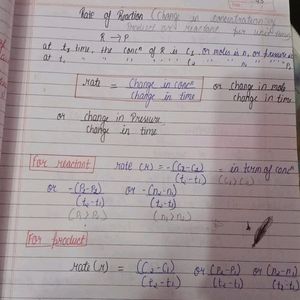 Rate of Reaction (Change in concentration of
Product or reactant per unit time
R → P
at t₁ time, the concⁿ of R is C₁, or moles is n₁ or pressure is P₁
at t₂ " " " " " C₂ " " " n₂ " " " P₂
rate = Change in concⁿ / change in time or change in mole / change in time
or change in Pressure / change in time
For reactant rate (r) = -(C₂-C₁) / (t₂-t₁) = in term of concⁿ
(C₁>C₂)
or -(P₂-P₁) / (t₂-t₁) or -(n₂-n₁) / (t₂-t₁)
(P₁>P₂) (n₁>n₂)
For product
rate (r) = (C₂-C₁) / (t₂-t₁) or (P₂-P₁) / (t₂-t₁) or (n₂-n₁) / (t₂-t₁)